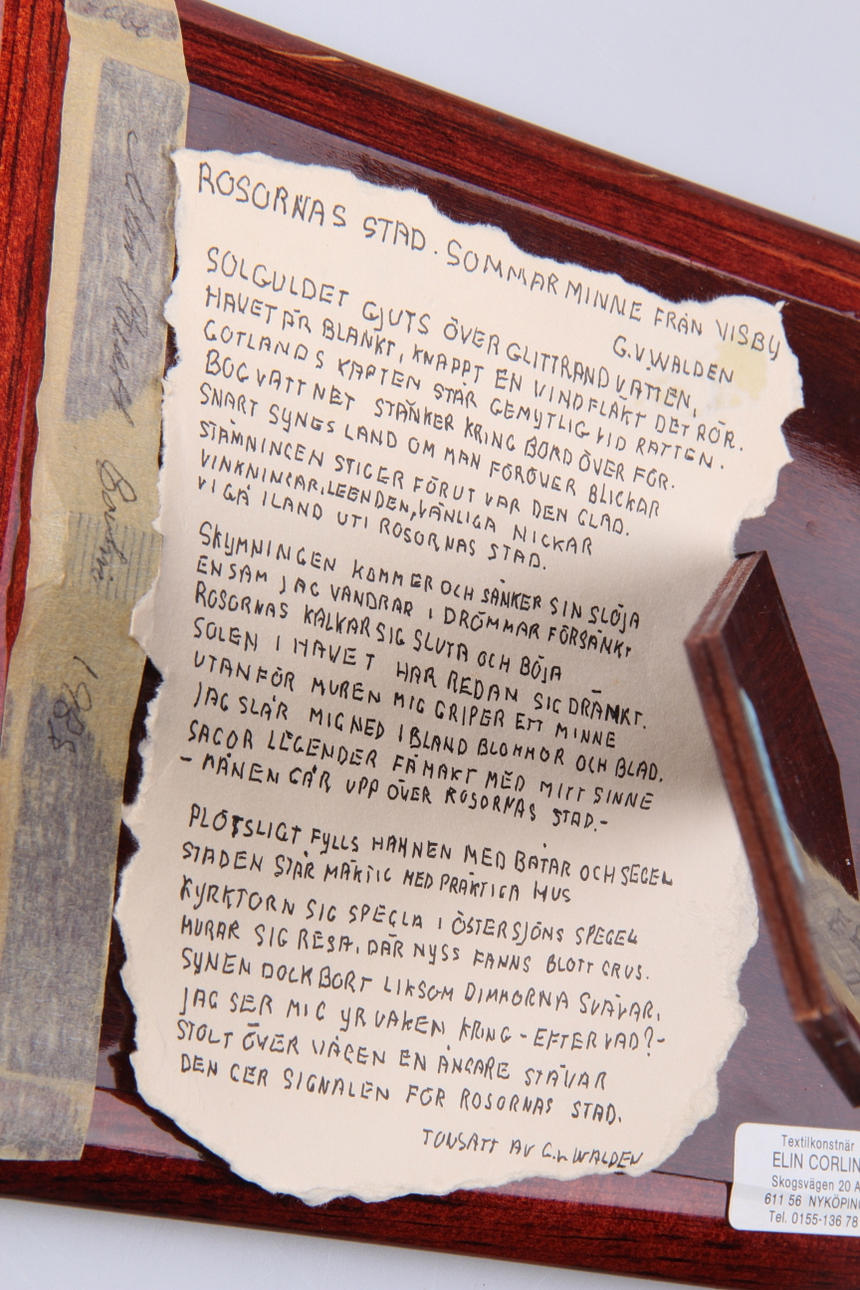 ROSORNAS STAD. SOMMARMINNE FRÅN VISBY
G.V.WALDEN
SOLGULDET GJUTS ÖVER GLITTRAND VATTEN,
HAVET ÄR BLANKT, KNAPPT EN VINDFLÄKT DET RÖR.
GOTLANDS KAPTEN STÅR GEMYTLIG VID RATTEN.
BOGVATTNET STÄNKER KRING BORD ÖVER FÖR.
SNART SYNGS LAND OM MAN FÖRÖVER BLICKAR
STÄMNINGEN STIGER FÖRUT VAR DEN GLAD.
VINKNINGAR, LEENDEN, VÄNLIGA NICKAR
VI GÅ ILAND UTI ROSORNAS STAD.
SKYMNINGEN KOMMER OCH SÄNKER SIN SLÖJA
ENSAM JAG VANDRAR I DRÖMMAR FÖRSÄNKT
ROSORNAS KALKAR SIG SLUTA OCH BÖJA
SOLEN I HAVET HAR REDAN SIG DRÄNKT.
UTANFÖR MUREN MIG GRIPER ETT MINNE
JAG SLÅR MIG NED IBLAND BLOMMOR OCH BLAD.
SAGOR LEGENDER FÅ MAKT MED MITT SINNE
- MÅNEN GÅR UPP ÖVER ROSORNAS STAD.-
PLÖTSLIGT FYLLS HAMNEN MED BÅTAR OCH SEGEL
STADEN STÅR MÄKTIG MED PRÄKTIGA HUS
KYRKTORN SIG SPEGLA I ÖSTERSJÖNS SPEGEL
MURAR SIG RESA, DÄR NYSS FANNS BLOTT GRUS.
SYNEN DOCK BORT LIKSOM DIMMORNA SVÄVAR,
JAG SER MIG YRVAKEN KRING - EFTER VAD?-
STOLT ÖVER VÅGEN EN ÅNGARE STÄVAR
DEN GER SIGNALEN FÖR ROSORNAS STAD.
TONSATT AV G.V WALDEN
1985
Textilkonstnär
ELIN CORLIN
Skogsvägen 20 A
611 56 NYKÖPING
Tel. 0155-136 78